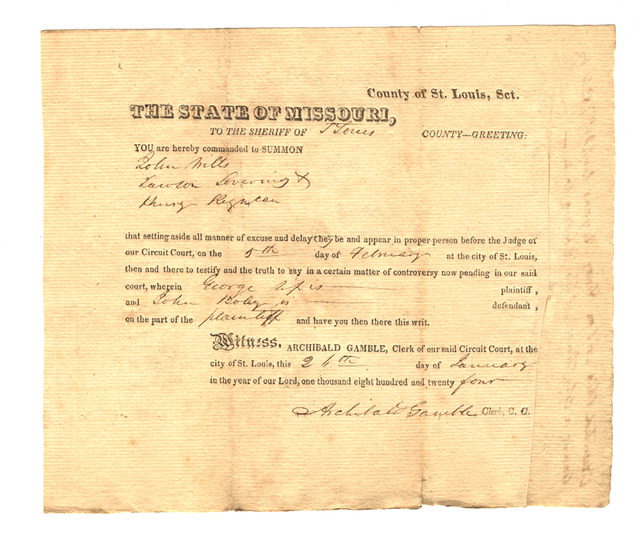 County of St. Louis, Sct.
THE STATE OF MISSOURI,
TO THE SHERIFF OF St Louis COUNTY—GREETING:
YOU are hereby commanded to SUMMON
John Wells
Lawson Lovering &
Henry
that setting aside all manner of excuse and delay they be and appear in proper person before the Judge of
our Circuit Court, on the 5th day of February at the city of St. Louis,
then and there to testify and the truth to say in a certain matter of controversy now pending in our said
court, wherein George is plaintiff,
and John is defendant,
on the part of the plaintiff and have you then there this writ.
Witness, ARCHIBALD GAMBLE, Clerk of our said Circuit Court, at the
city of St. Louis, this 26th day of January
in the year of our Lord, one thousand eight hundred and twenty four
Archibald Gamble Clerk, C. C.